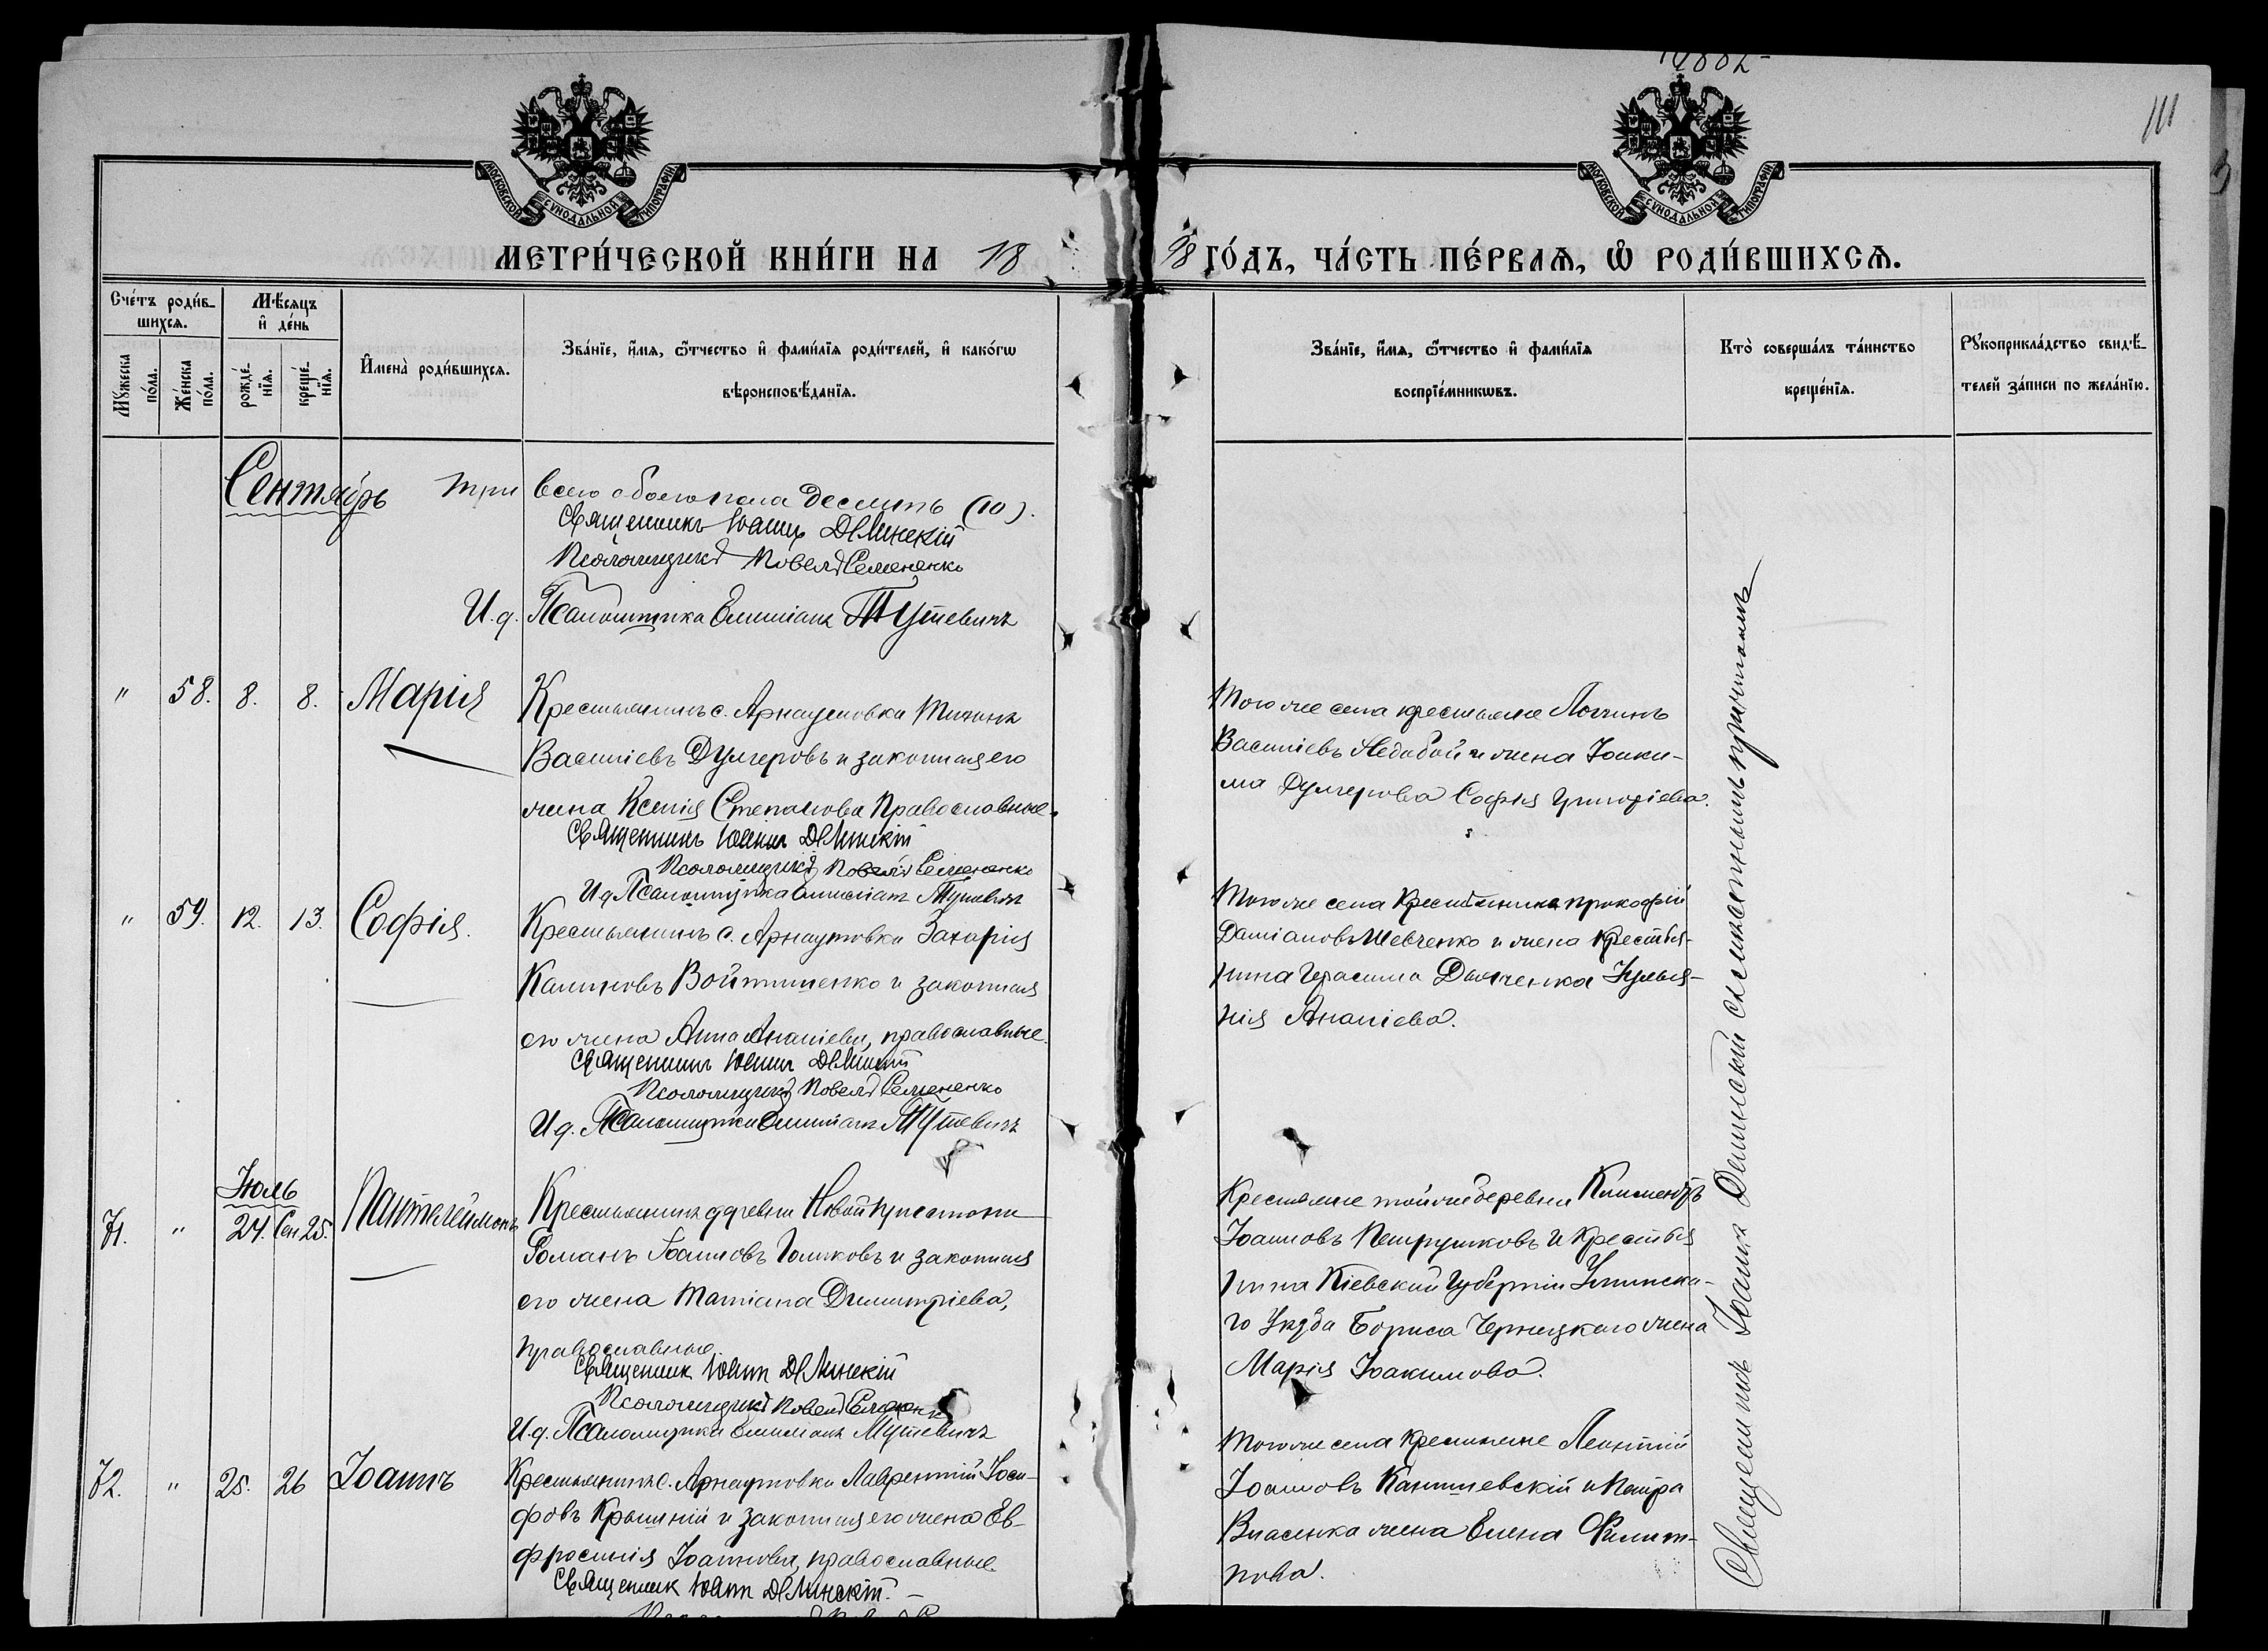 18882
111
МОСКОВСКОЙ СѴНОДАЛЬНОЙ ТИПОГРАФІИ
МОСКОВСКОЙ СѴНОДАЛЬНОЙ ТИПОГРАФІИ
МЕТРИ́ЧЕСКОЙ КНИ́ГИ НА 18 98 ГО́ДЪ, ЧА́СТЬ ПЕ́РВАѦ, Ѡ҆ РОДИ́ВШИХСѦ.
Сче́тъ роди́в-
шихсѧ.
Мꙋ́жеска
по́ла.
Же́нска
по́ла.
Мѣ́сѧцъ
и҆ де́нь
рожде́-
нїѧ.
креще́-
нїѧ.
И҆мена̀ роди́вшихсѧ.
Зва́нїе, и҆́мѧ, ѻ҆́тчество и҆ фами́лїѧ роди́телей, и҆ како́гѡ
вѣроисповѣ́данїѧ.
Зва́нїе, и҆́мѧ, ѻ҆́тчество и҆ фами́лїѧ
воспрїе́мникѡвъ.
Кто̀ соверша́лъ та́инство
креще́нїѧ.
Рꙋкоприкла́дство свидѣ́-
телей за́писи по жела́нїю.
Сентябрь
три всего обоего пола десять (10).
Священникъ Іоаннъ Делинскій
Псаломщикъ Павелъ Семененко
И. д. Псаломщика Емиліанъ Тутевичъ
" 58. 8. 8. Марія
Крестьянинъ с. Арнаутовки Титъ
Василіевъ Дулгеровъ и законная его
жена Ксенія Степанова православные.
Священникъ Іоаннъ Делинскій
Псаломщикъ Павелъ Семененко
И д Псаломщика Емиліанъ Тутевичъ
Того же села крестьяне Логгинъ
Василіевъ Недобой и жена Іоаки-
ма Дулгерова Софія Григоріева.
" 59. 12. 13. Софія.
Крестьянинъ с. Арнаутовки Захарія
Калиновъ Войтишенко и законная
его жена Анна Ананіева, православные.
Священникъ Іоаннъ Делинскій
Псаломщикъ Павелъ Семененко
И д. Псаломщика Емиліанъ Тутевичъ
Того же села Крестьянинъ Прокофій
Даміановъ Шевченко и жена Крестья-
нина Герасима Дьяченка Іуліа-
нія Ананіева.
Іюль
71. " 24. Сен 25. Пантелеймонъ
Крестьянинъ деревни Новой Пристани
Романъ Іоанновъ Голиковъ и законная
его жена Татіана Димитріева,
православные.
Священникъ Іоаннъ Делинскій
Псаломщикъ Павелъ Семененко
И. д. Псаломщика Емиліанъ Тутевичъ
Крестьяне той же деревни Климентъ
Іоанновъ Петрушковъ и Крестья
нина Кіевской Губерніи Уманска-
го Уѣзда Бориса Чернецкаго жена
Марія Іоакимова.
72. " 25. 26 Іоаннъ
Крестьянинъ с. Арнаутовки Лаврентій Іоси-
фовъ Крышній и законная его жена Ев-
фросинія Іоаннова, православные.
Священникъ Іоаннъ Делинскій.
Того же села крестьяне Леонтій
Іоанновъ Канишевскій и Петра
Власенка жена Елена Филип-
пова.
Священникъ Іоаннъ Делинскій съ нижеподписавшимся причтомъ